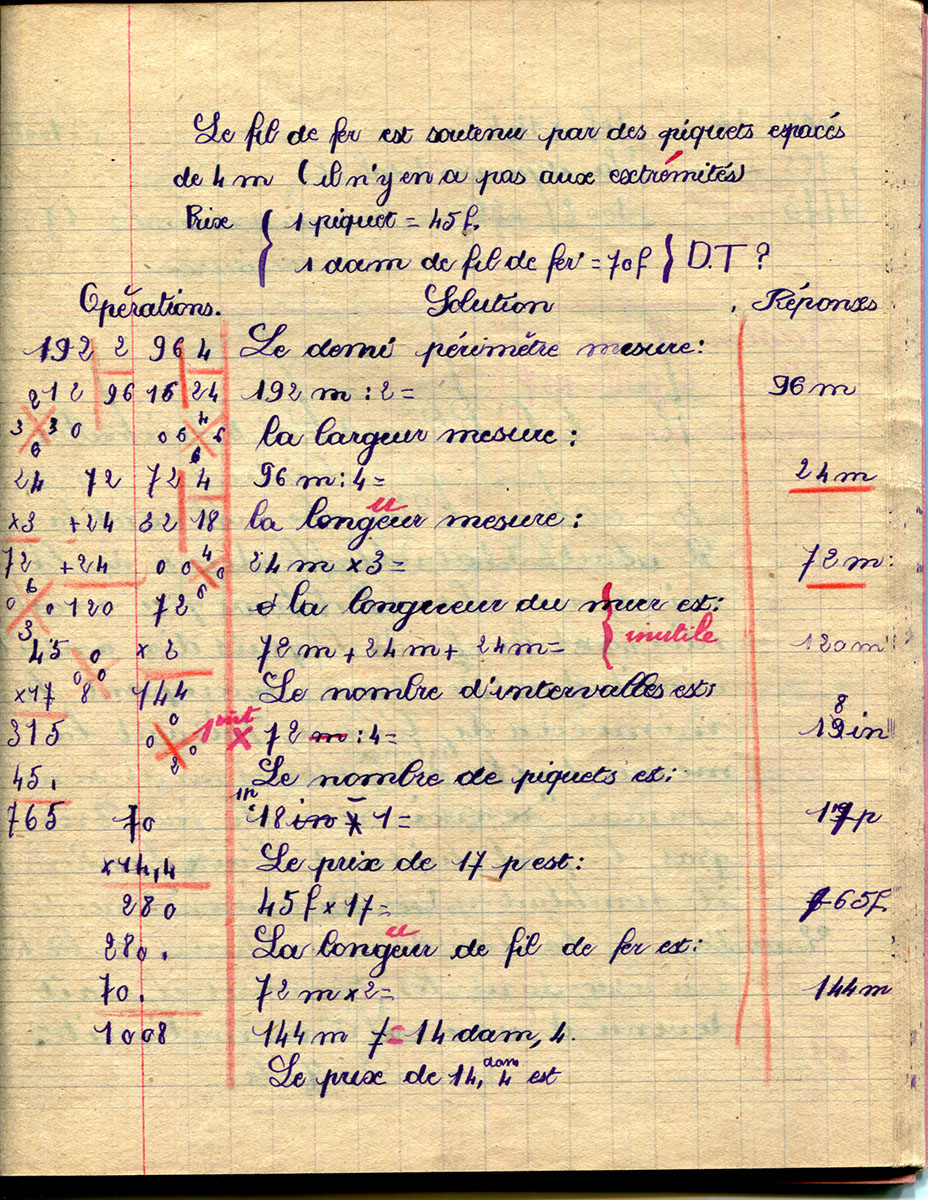 Le fil de fer est soutenu par des piquets espacés
de 4 m (il n'y en a pas aux extrémités)
Prix { 1 piquet = 45 f.
1 dam de fil de fer = 70 f } D.T ?
Opérations. Solution Réponses
192 2 96 4 Le demi périmètre mesure:
212 96 16 24 192 m : 2 = 96 m
3 3 0 0 6 4 6 la largeur mesure :
6 6
24 72 72 4 96 m : 4 = 24 m
u
x3 +24 32 18 la longeur mesure :
72 +24 0 0 4 0 24 m x 3 = 72 m
0 6 0 120 72 la longueur du mur est:
3
45 0 x 2 72 m + 24 m + 24 m = } inutile 120 m
x17 0 8 0 144 Le nombre d'intervalles est:
315 0 0 0 1 int X 72 m : 4 = 18 in
2
45. Le nombre de piquets est:
765 70 1p 18 in - 1 = 17 p
x14,4 Le prix de 17 p est:
280 45 f x 17 = 765 f.
u
280. La longeur de fil de fer est:
70. 72 m x 2 = 144 m
1008 144 m = 14 dam, 4.
Le prix de 14, dam 4 est